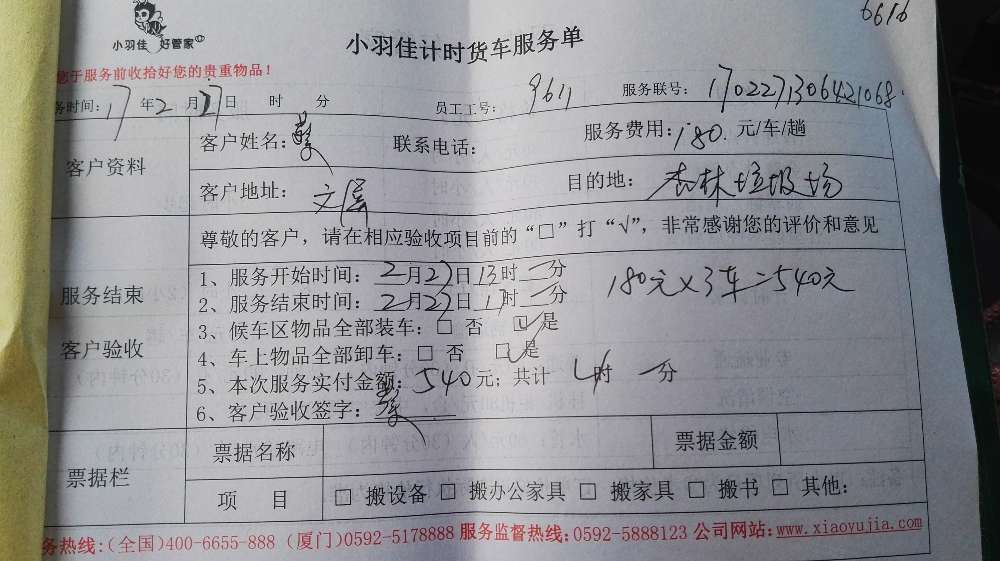 6616
小羽佳 好管家
小羽佳计时货车服务单
您于服务前收拾好您的贵重物品！
务时间：17年2月27日 时 分 员工工号：9611 服务联号：1702271306421068.
客户资料 客户姓名：蔡 联系电话： 服务费用：180.元/车/趟
客户地址：文屏 目的地：杏林垃圾场
尊敬的客户，请在相应验收项目前的“□”打“√”，非常感谢您的评价和意见
服务结束
客户验收
1、服务开始时间：2月27日13时一分 180元×3车=540元
2、服务结束时间：2月27日17时一分
3、候车区物品全部装车：□ 否 ☑是
4、车上物品全部卸车：□ 否 ☑是
5、本次服务实付金额：540元；共计 4时 一分
6、客户验收签字：蔡
票据栏 票据名称 票据金额
项 目 □ 搬设备 □ 搬办公家具 □ 搬家具 □ 搬书 □ 其他：
务热线：(全国)400-6655-888 (厦门)0592-5178888 服务监督热线：0592-5888123 公司网站：www.xiaoyujia.com